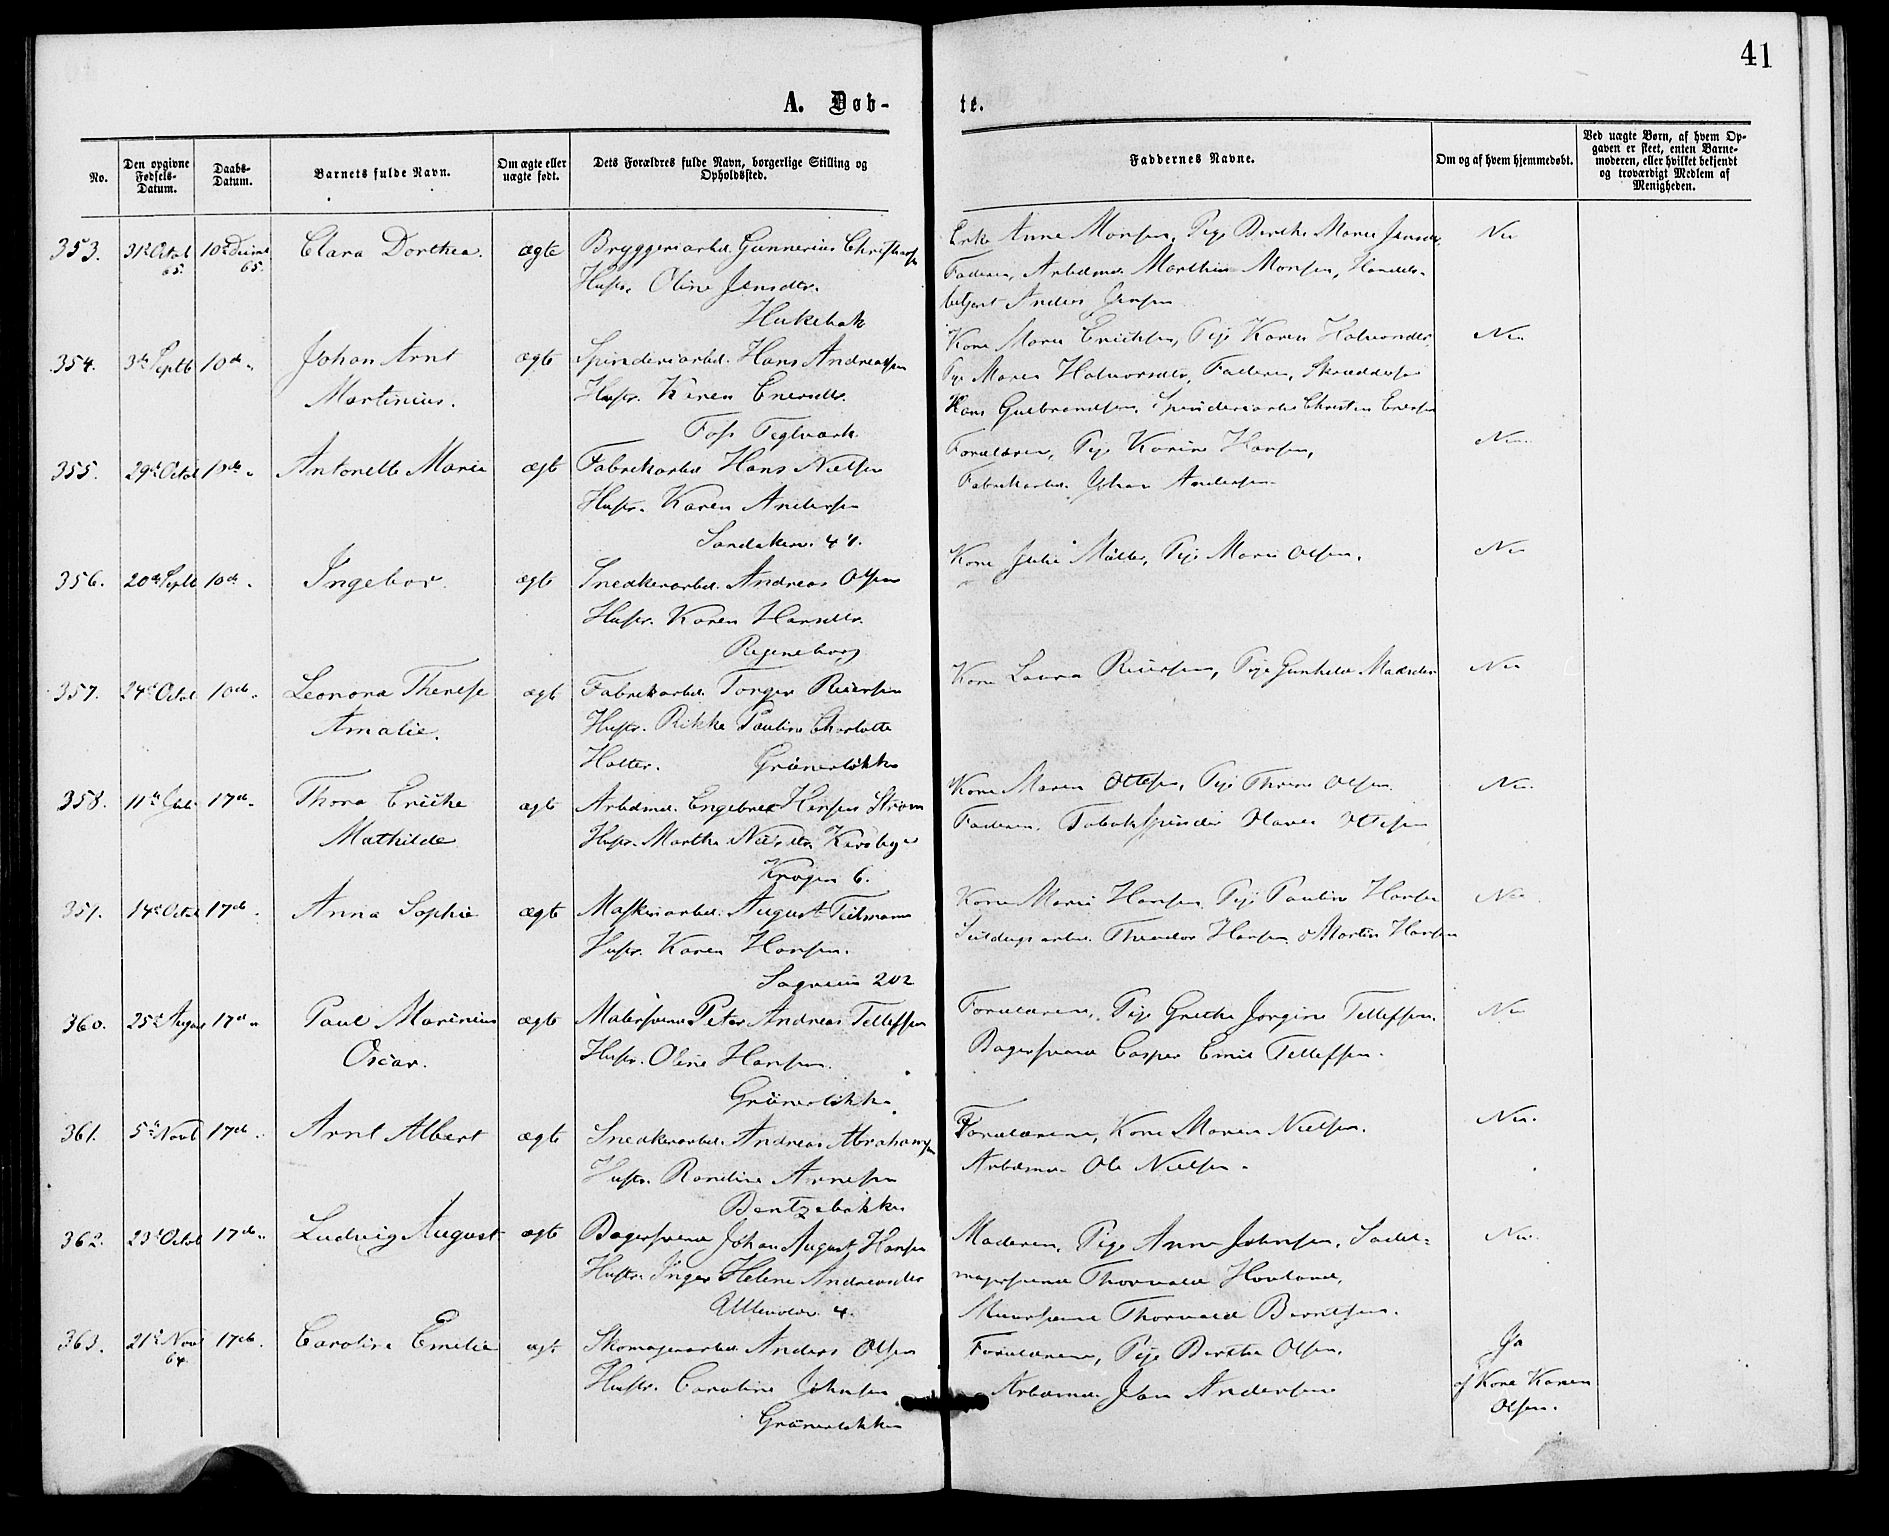 41
A. Døb-
te.
No.
Den opgivne Fødsels-Datum.
Daabs-Datum.
Barnets fulde Navn.
Om ægte eller uægte født.
Dets Forældres fulde Navn, borgerlige Stilling og Opholdssted.
Faddernes Navne.
Om og af hvem hjemmedøbt.
Ved uægte Børn, af hvem Opgaven er skeet, enten Barnemoderen, eller hvilket bekjendt og troværdigt Medlem af Menigheden.
353. 31te Octob 65. 10de Decemb 65. Clara Dorthea. ægte Bryggeriarbd. Gunnerius Christensen
Hustr. Oline Jensdtr.
Enke Anne Monsen, Pige Berthe Marie Jensen
Faderen, Arbdmd. Marthin Monsen, Handels-
betjent Anders Jensen
Nei
354. 3de Septb 10de. Johan Arnt ægte Spinderiarbd. Hans Andreassen
Martinius. Hustr. Karen Enersdtr.
Foss Teglværk.
Kone Maren Erichsen, Pige Karen Halvorsdtr
Pige Maren Halvorsdtr, Faderen,
Hans Gulbrandsen, Spinderiarbd Christen Enersen
Nei
355. 29de Octob 10de. Antonette Marie ægt Fabrikarbd. Hans Nielsen
Hustr. Karen Andersen
Sandakerv. 44.
Forældrene, Pige Karine Hansen,
Fabrikarbd. Johan Andersen
Nei.
356. 20de Septb 10de. Ingebor. ægt Snedkerarbd. Andreas Olsen
Hustr. Karen Hansdtr.
Regneborg
Kone Julie Møller, Pige Maren Olsen.
Nei
357. 24de Octob 10de. Leonora Therese ægt Fabrikarbd. Torger Reiersen
Amalie. Hustr. Rikke Pauline Charlotte
Holter. Grünerløkke
Kone Laura Reiersen, Pige Gunhild
Nei
358. 11te Juli 17de. Thora Ericke ægt Arbdmd. Engebret Hansen Strøm
Mathilde Hustr. Marthe
Krogen 6.
Kone Maren Ottesen, Pige Thrine Olsen.
Faderen, Tobakspinder Olaves Ottesen
Nei.
351. 14de Octob 17de. Anna Sophie ægte Maskinarbd. August Teilmann
Hustr. Karen Hansen.
Sagveien 202
Kone Marie Hansen, Pige Pauline Hansen
Theodor Hansen, Martin Hansen
Nei
360. 25de August 17de. Paul Marinius ægte Malersvend Peter Andreas Tellefsen
Oscar. Hustr. Oline Hansen.
Grünerløkke.
Forældrene, Pige Grethe Jorgine Tellefsen.
Bagersvend Casper Emil Tellefsen.
Nei
361. 5te Novb 17de. Arnt Albert ægte Snedkerarbd. Andreas Abrahamsen
Hustr. Randine Arnesen
Bentzebakken
Forældrene, Kone Maren Nielsen.
Arbdmd. Ole Nielsen.
Nei.
362. 23de Octob 17de. Ludvig August ægte Bagersvend Johan August Hansen
Hustr. Inger Helene Andreasdtr
4.
Moderen, Pige Anne Johnsen, Sadel-
magersvend Thorvald Hovland,
Muursvend Thorvald Berntsen.
Nei.
363. 21de Novb 64. 17de. Caroline Emilie ægt Skomagerarbd. Anders Olsen
Hustr. Caroline Johnsen
Grünerløkken
Forældrene, Pige Berthe Olsen,
Arbdmd. Jan Andersen
Ja
af Kone Karen
Olsen.